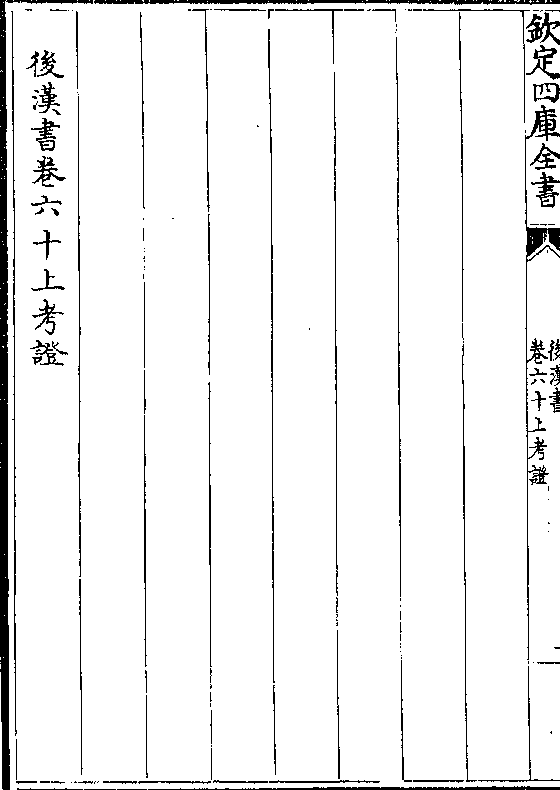 欽定四庫全書
後漢書
卷六十上考證
後漢書卷六十上考證